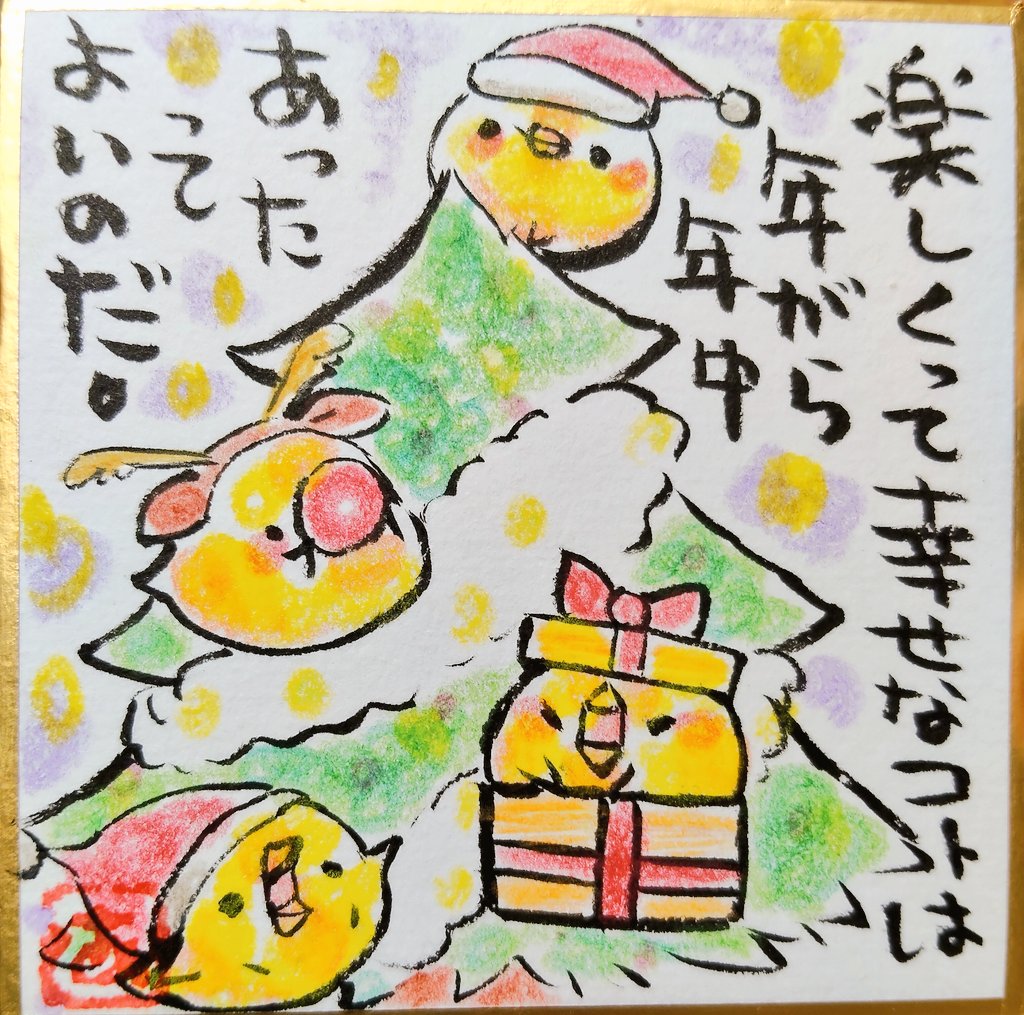 楽しくって幸せなコトは
年がら
年中
あった
って
よいのだ。